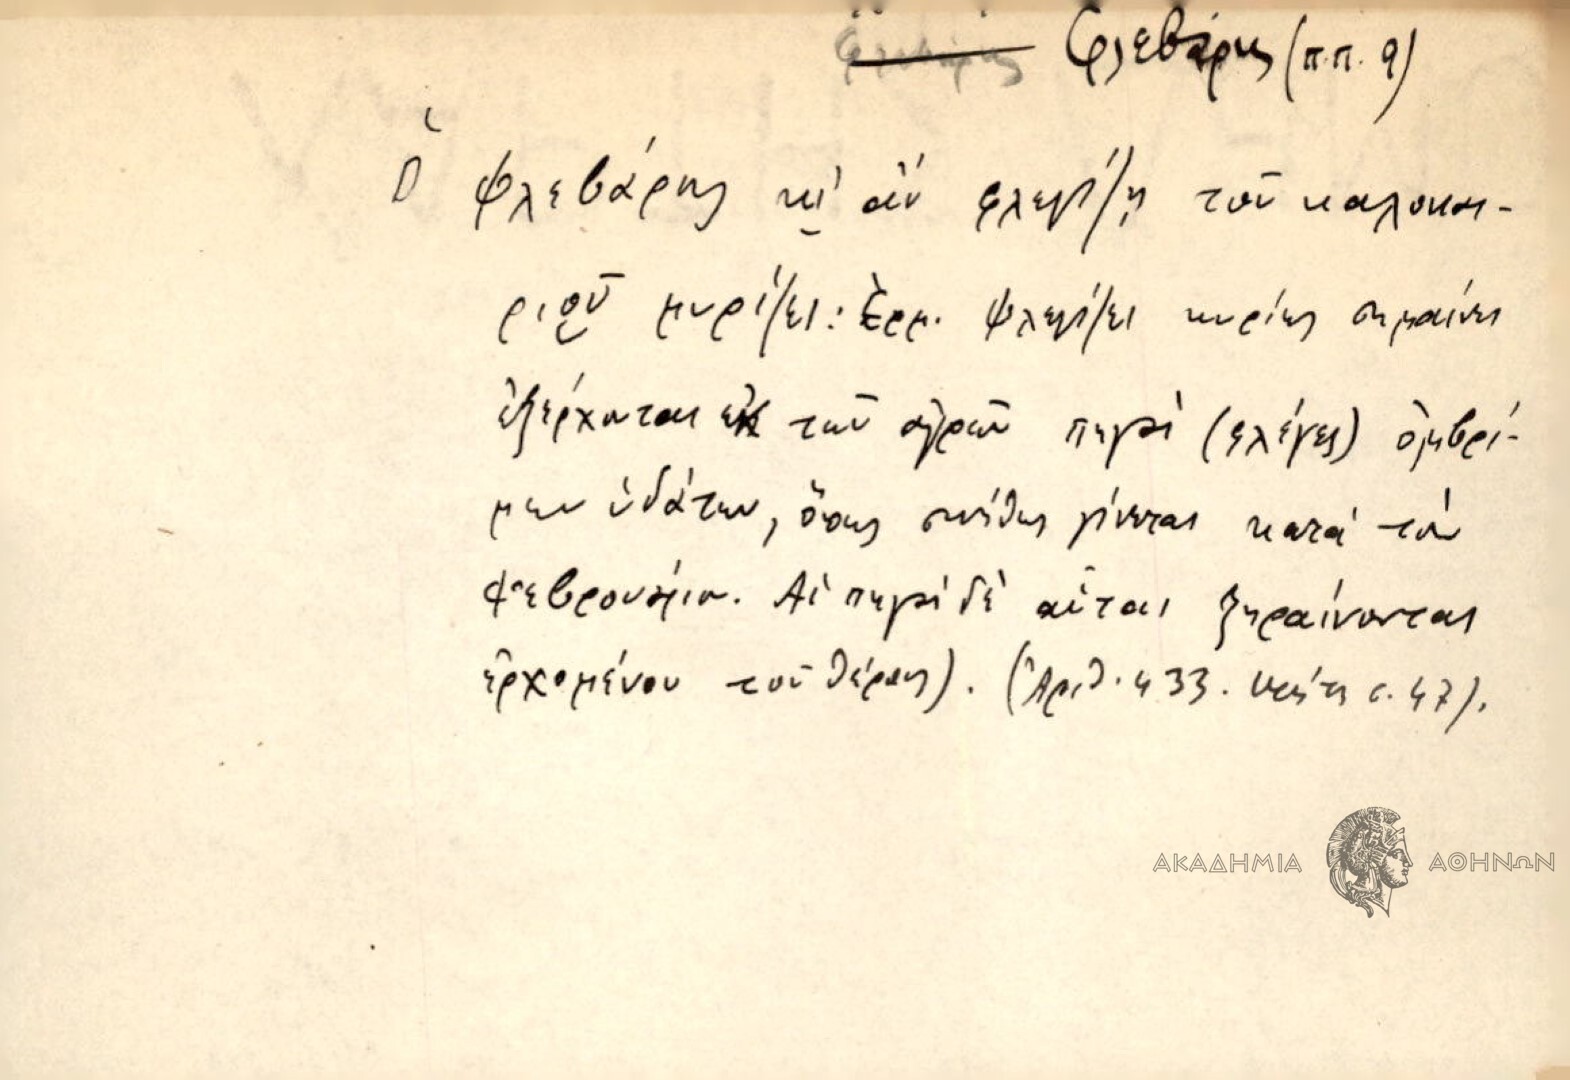 Φλεβάρης (π.π. 9)
Ὁ Φλεβάρης κι̮ ἂν φλεγίζῃ τοῦ καλοκαι-
ριοῦ μυρίζει: Ἑρμ. Φλεγίζει κυρίως σημαίνει
ἐξέρχονται ἐκ τῶν ἀγρῶν πηγαὶ (φλέγες) ὀμβρί-
μων ὑδάτων, ὅπως συνήθως γίνεται κατὰ τὸν
Φεβρουάριον. Αἱ πηγαὶ δὲ αὗται ξηραίνονται
ἐρχομένου τοῦ θέρους). (Ἀριθ. 433. Κρήτη σ. 47).
ΑΚΑΔΗΜΙΑ ΑΘΗΝΩΝ